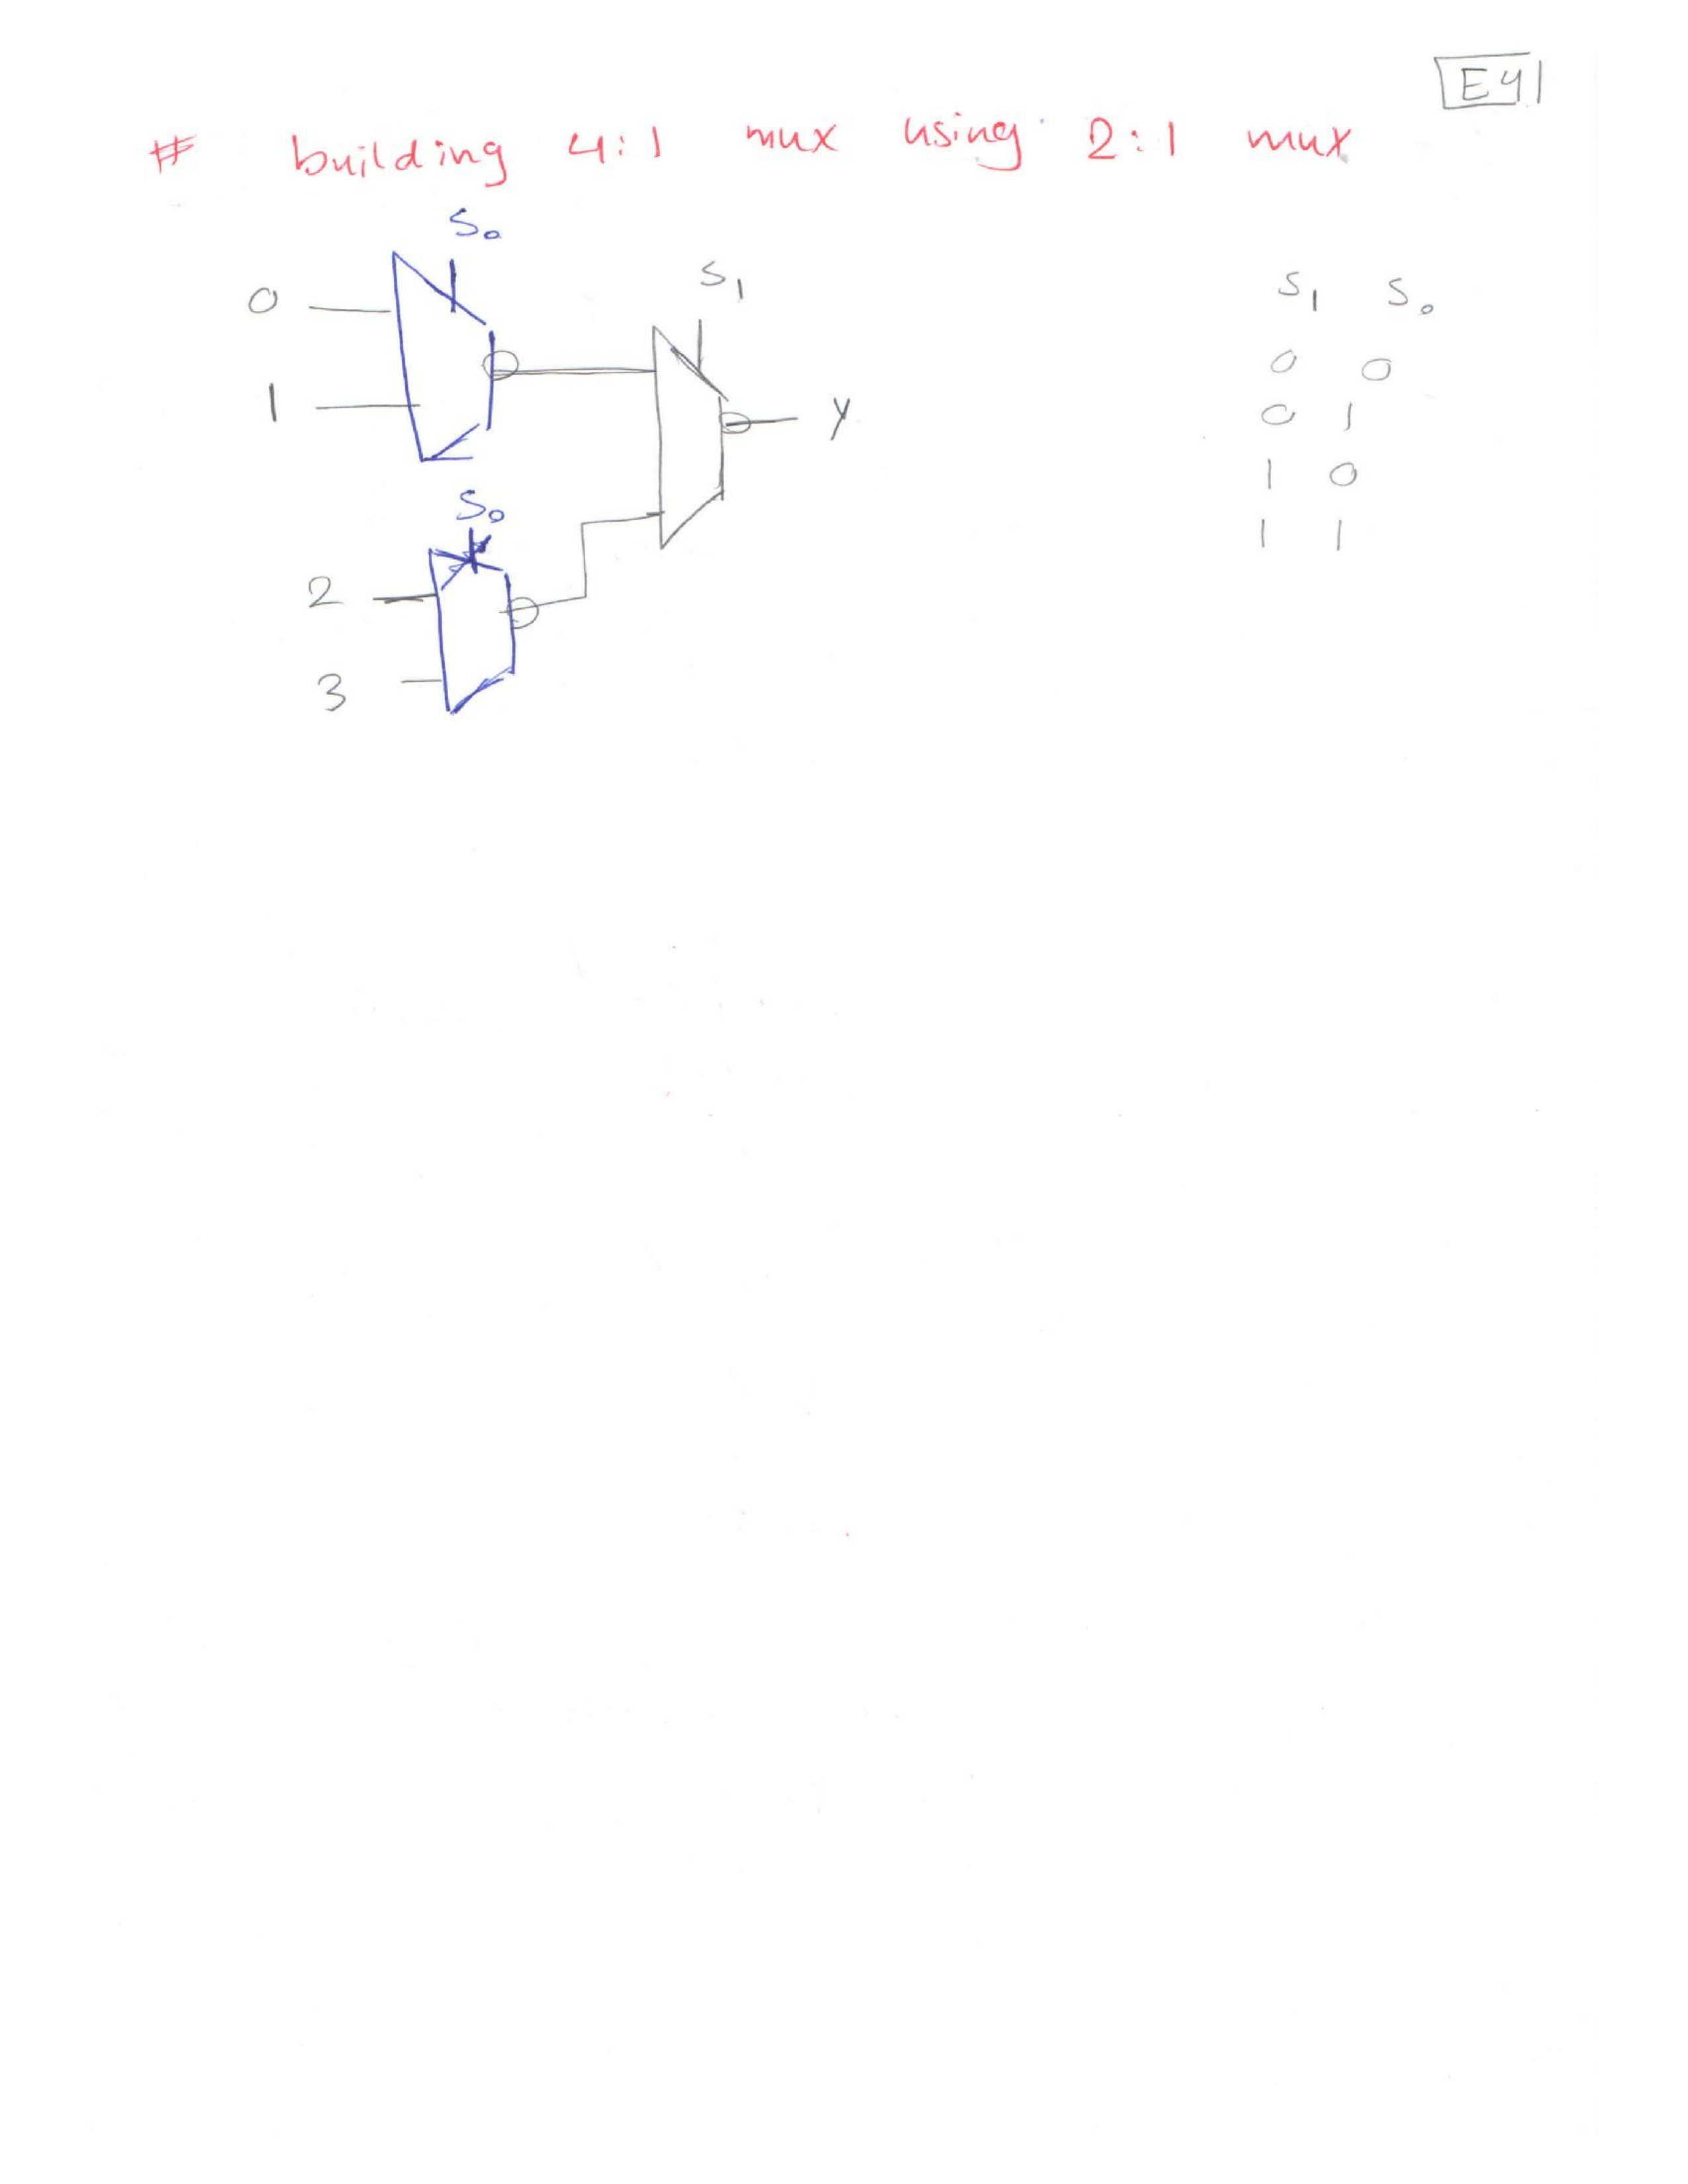 E41
# building 4:1 mux using 2:1 mux
S0
S1
0
1
y
S0
2
3
S1 S0
0 0
0 1
1 0
1 1